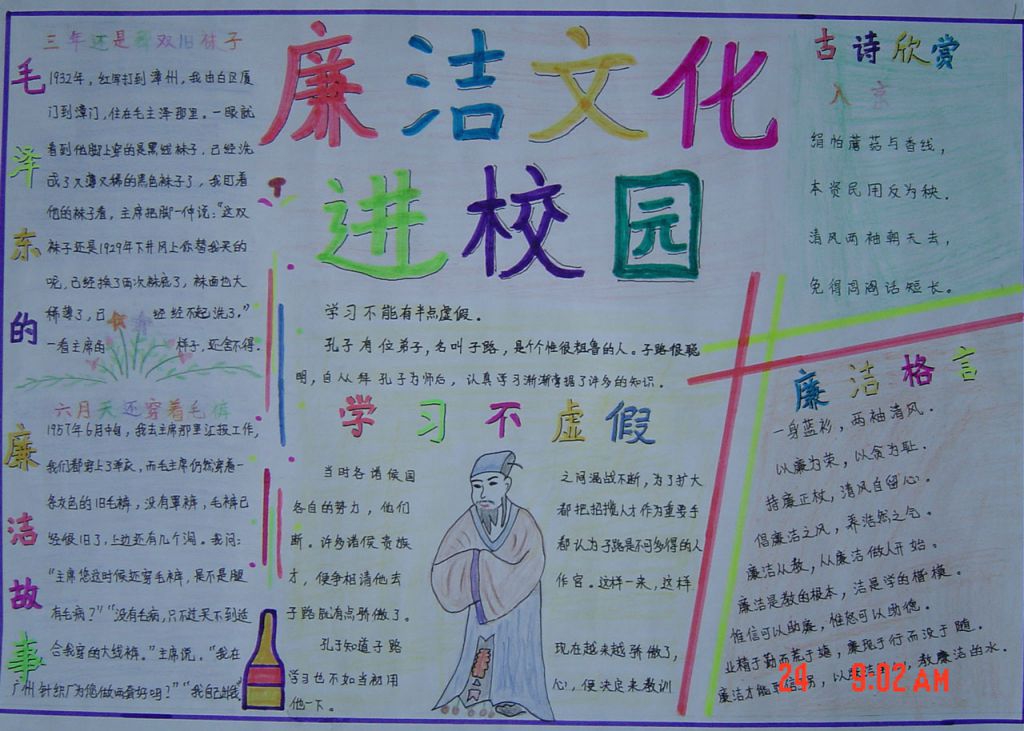 廉洁文化
进校园
毛泽东的
廉洁故事
三年还是两双旧袜子
1932年，红军打到漳州，我由白区厦
门到漳门，住在毛主泽那里。一眼就
看到他脚上穿的是黑线袜子，已经洗
成了又薄又稀的黑色袜子了，我盯着
他的袜子看，主席把脚一伸说：“这双
袜子还是1929年下井冈上你替我买的
呢，已经换了两次袜底了，袜面也太
稀薄了，日 经经不起洗了。”
一看主席的 样子，还舍不得.
六月天还穿着毛裤
1957年6月中旬，我去主席那里汇报工作，
我们都穿上了单衣，而毛主席仍然穿着一
条灰色的旧毛裤，没有罩裤，毛裤已
经很旧了，上边还有几个洞。我问：
“主席您这时候还穿毛裤，是不是腿
有毛病？”“没有毛病，只不过买不到适
合我穿的大线裤。”主席说，“我在
广州针织厂为您做两套好吗？”“我自己
学习不能有半点虚假。
孔子有位弟子，名叫子路，是个个性很粗鲁的人。子路很聪
明，自从拜孔子为师后，认真学习渐渐掌握了许多的知识。
学习不虚假
当时各诸侯国之间混战不断，为了扩大
各自的努力，他们都把招揽人才作为重要手
断。许多诸侯贵族都认为子路是不可多得的人
才，便争相请他去作官。这样一来，这样
子路就有点骄傲了。
孔子知道子路现在越来越骄傲了，
学习也不如当初用心，便决定来教训
他一下。
古诗欣赏
入京
绢帕蘑菇与香线，
本资民用反为秧.
清风两袖朝天去，
免得闾阎话短长。
廉洁格言
一身蓝衫，两袖清风.
以廉为荣，以贪为耻.
持廉正杖，清风自留心.
倡廉洁之风，养浩然之气.
廉洁从教，从廉洁做人开始.
廉洁是教的根本，洁是学的楷模.
惟信可以助廉，惟恕可以助德.
业精于勤而荒于嬉，廉现于行而没于随.
廉洁才能 教廉洁的水.
24 9:02 AM